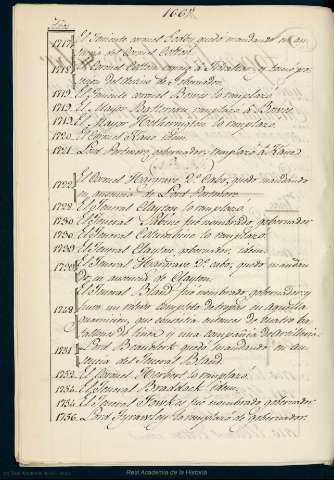 1662.
1717. El Teniente coronel Cotton quedó mandando en au-
sencia del Coronel Cotton.
1718. El Coronel Cotton
gozar del destino de Gobernador.
1719. El Teniente coronel Bowes le remplazó.
1719. El Mayor Batteraux remplazó á Bowes.
1719. El Mayor Hetherington lo remplazó.
1720. El Coronel Kane idem.
1721. Lord Portmore, gobernador, remplazó á Kane.
1722. El Coronel Hargrave 2.º Cabo, quedó mandando
en ausencia de Lord Portmore.
1728. El General Clayton lo remplazó.
1730. El General Sabine fué nombrado gobernador.
1738. El General Columbine lo remplazó.
1739. El General Clayton, gobernador, idem.
1739. El General Hargrave 2.º cabo, quedó mandan-
do, en ausencia de Clayton.
1749. El General Bland fué nombrado gobernador y
hizo un nuevo completo de reglas en aquella
guarnicion, que consistia entonces de cuatro ba-
tallones de linea y una compañia de artilleria.
1751. Lord Beauclerk quedó mandando en au-
sencia del General Bland.
1752. El Coronel Herbert lo remplazó.
1753. El General Braddock idem.
1754. El General Fowkes fué nombrado gobernador.
1756. Lord Tyrawley lo remplazó de gobernador.
Real Academia de la Historia